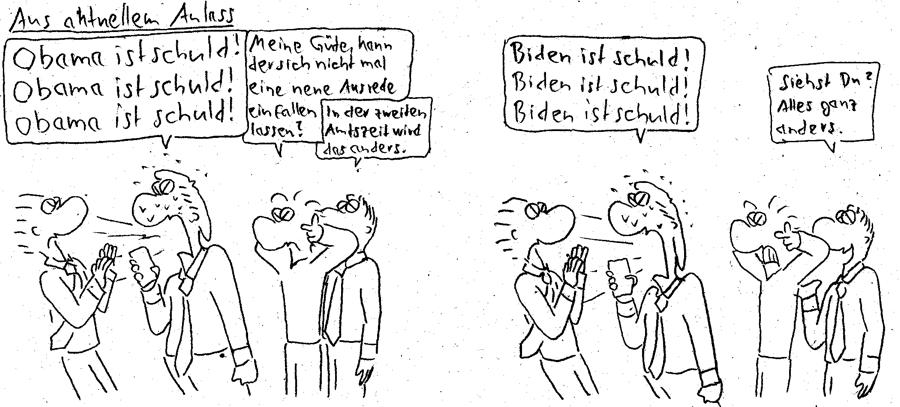 Aus aktuellem Anlass
Obama ist schuld!
Obama ist schuld!
Obama ist schuld!
Meine Güte, kann
der sich nicht mal
eine neue Ausrede
einfallen
lassen?
In der zweiten
Amtszeit wird
das anders.
Biden ist schuld!
Biden ist schuld!
Biden ist schuld!
Siehst Du?
Alles ganz
anders.